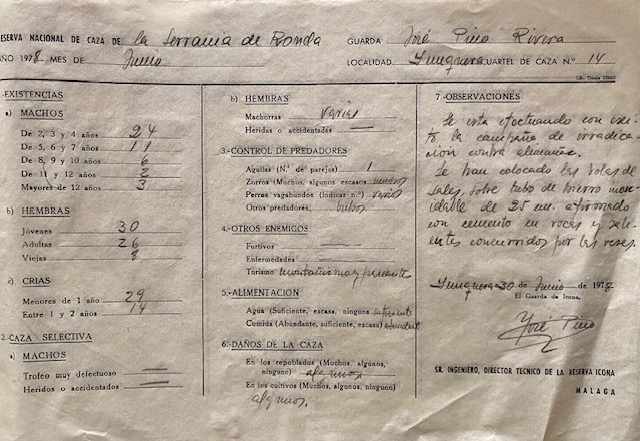 RESERVA NACIONAL DE CAZA DE la Serrania de Ronda
GUARDA José Pino Rivera
AÑO 1978 MES DE Junio
LOCALIDAD Yunquera CUARTEL DE CAZA N.º 14
1.-EXISTENCIAS
a) MACHOS
De 2, 3 y 4 años 24
De 5, 6 y 7 años 11
De 8, 9 y 10 años 6
De 11 y 12 años 2
Mayores de 12 años 3
b) HEMBRAS
Jóvenes 30
Adultas 26
Viejas 8
c) CRIAS
Menores de 1 año 29
Entre 1 y 2 años 14
2.-CAZA SELECTIVA
a) MACHOS
Trofeo muy defectuoso —
Heridos o accidentados —
b) HEMBRAS
Machorras varias
Heridas o accidentadas —
3.-CONTROL DE PREDADORES
Aguilas (N.º de parejas) 1
Zorros (Muchos, algunos escasos) muchos
Perros vagabundos (Indicar n.º) varios
Otros predadores, buhos
4.-OTROS ENEMIGOS
Furtivos —
Enfermedades —
Turismo montañismo y
5.-ALIMENTACION
Agua (Suficiente, escasa, ninguna suficiente
Comida (Abundante, suficiente, escasa) abundante
6.-DAÑOS DE LA CAZA
En los repoblados (Muchos, algunos,
ninguno) algunos
En los cultivos (Muchos, algunos, ninguno)
algunos.
7.-OBSERVACIONES
Se esta efectuando con exi-
to la campaña de irradica-
cion contra alimañas.
Se han colocado las bolas de
sales, sobre tubo de hierro inox-
idable de 25 mm. aprisionado
con cemento en rocas y sali-
entes concurridos por las reses.
Yunquera 30 de Junio de 1978
El Guarda de Icona,
José Pino
SR. INGENIERO, DIRECTOR TECNICO DE LA RESERVA ICONA
MALAGA